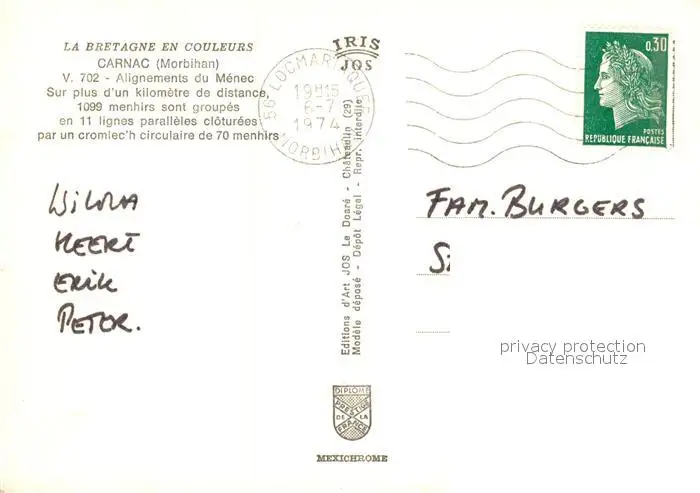 LA BRETAGNE EN COULEURS
CARNAC (Morbihan)
V. 702 - Alignements du Ménec
Sur plus d'un kilomètre de distance,
1099 menhirs sont groupés
en 11 lignes parallèles clôturées
par un cromlec'h circulaire de 70 menhirs
WILMA
Erik
PETER.
IRIS
JOS
56 LOCMARIAQUER
19H15
6-7
1974
MORBIHAN
Editions d'Art JOS Le Doaré - Châteaulin (29)
Modèle déposé - Dépôt Légal - Repr. interdite
DIPLOME
PRESTIGE
DE LA
FRANCE
MEXICHROME
0,30
POSTES
REPUBLIQUE FRANÇAISE
FAM. BURGERS
privacy protection
Datenschutz